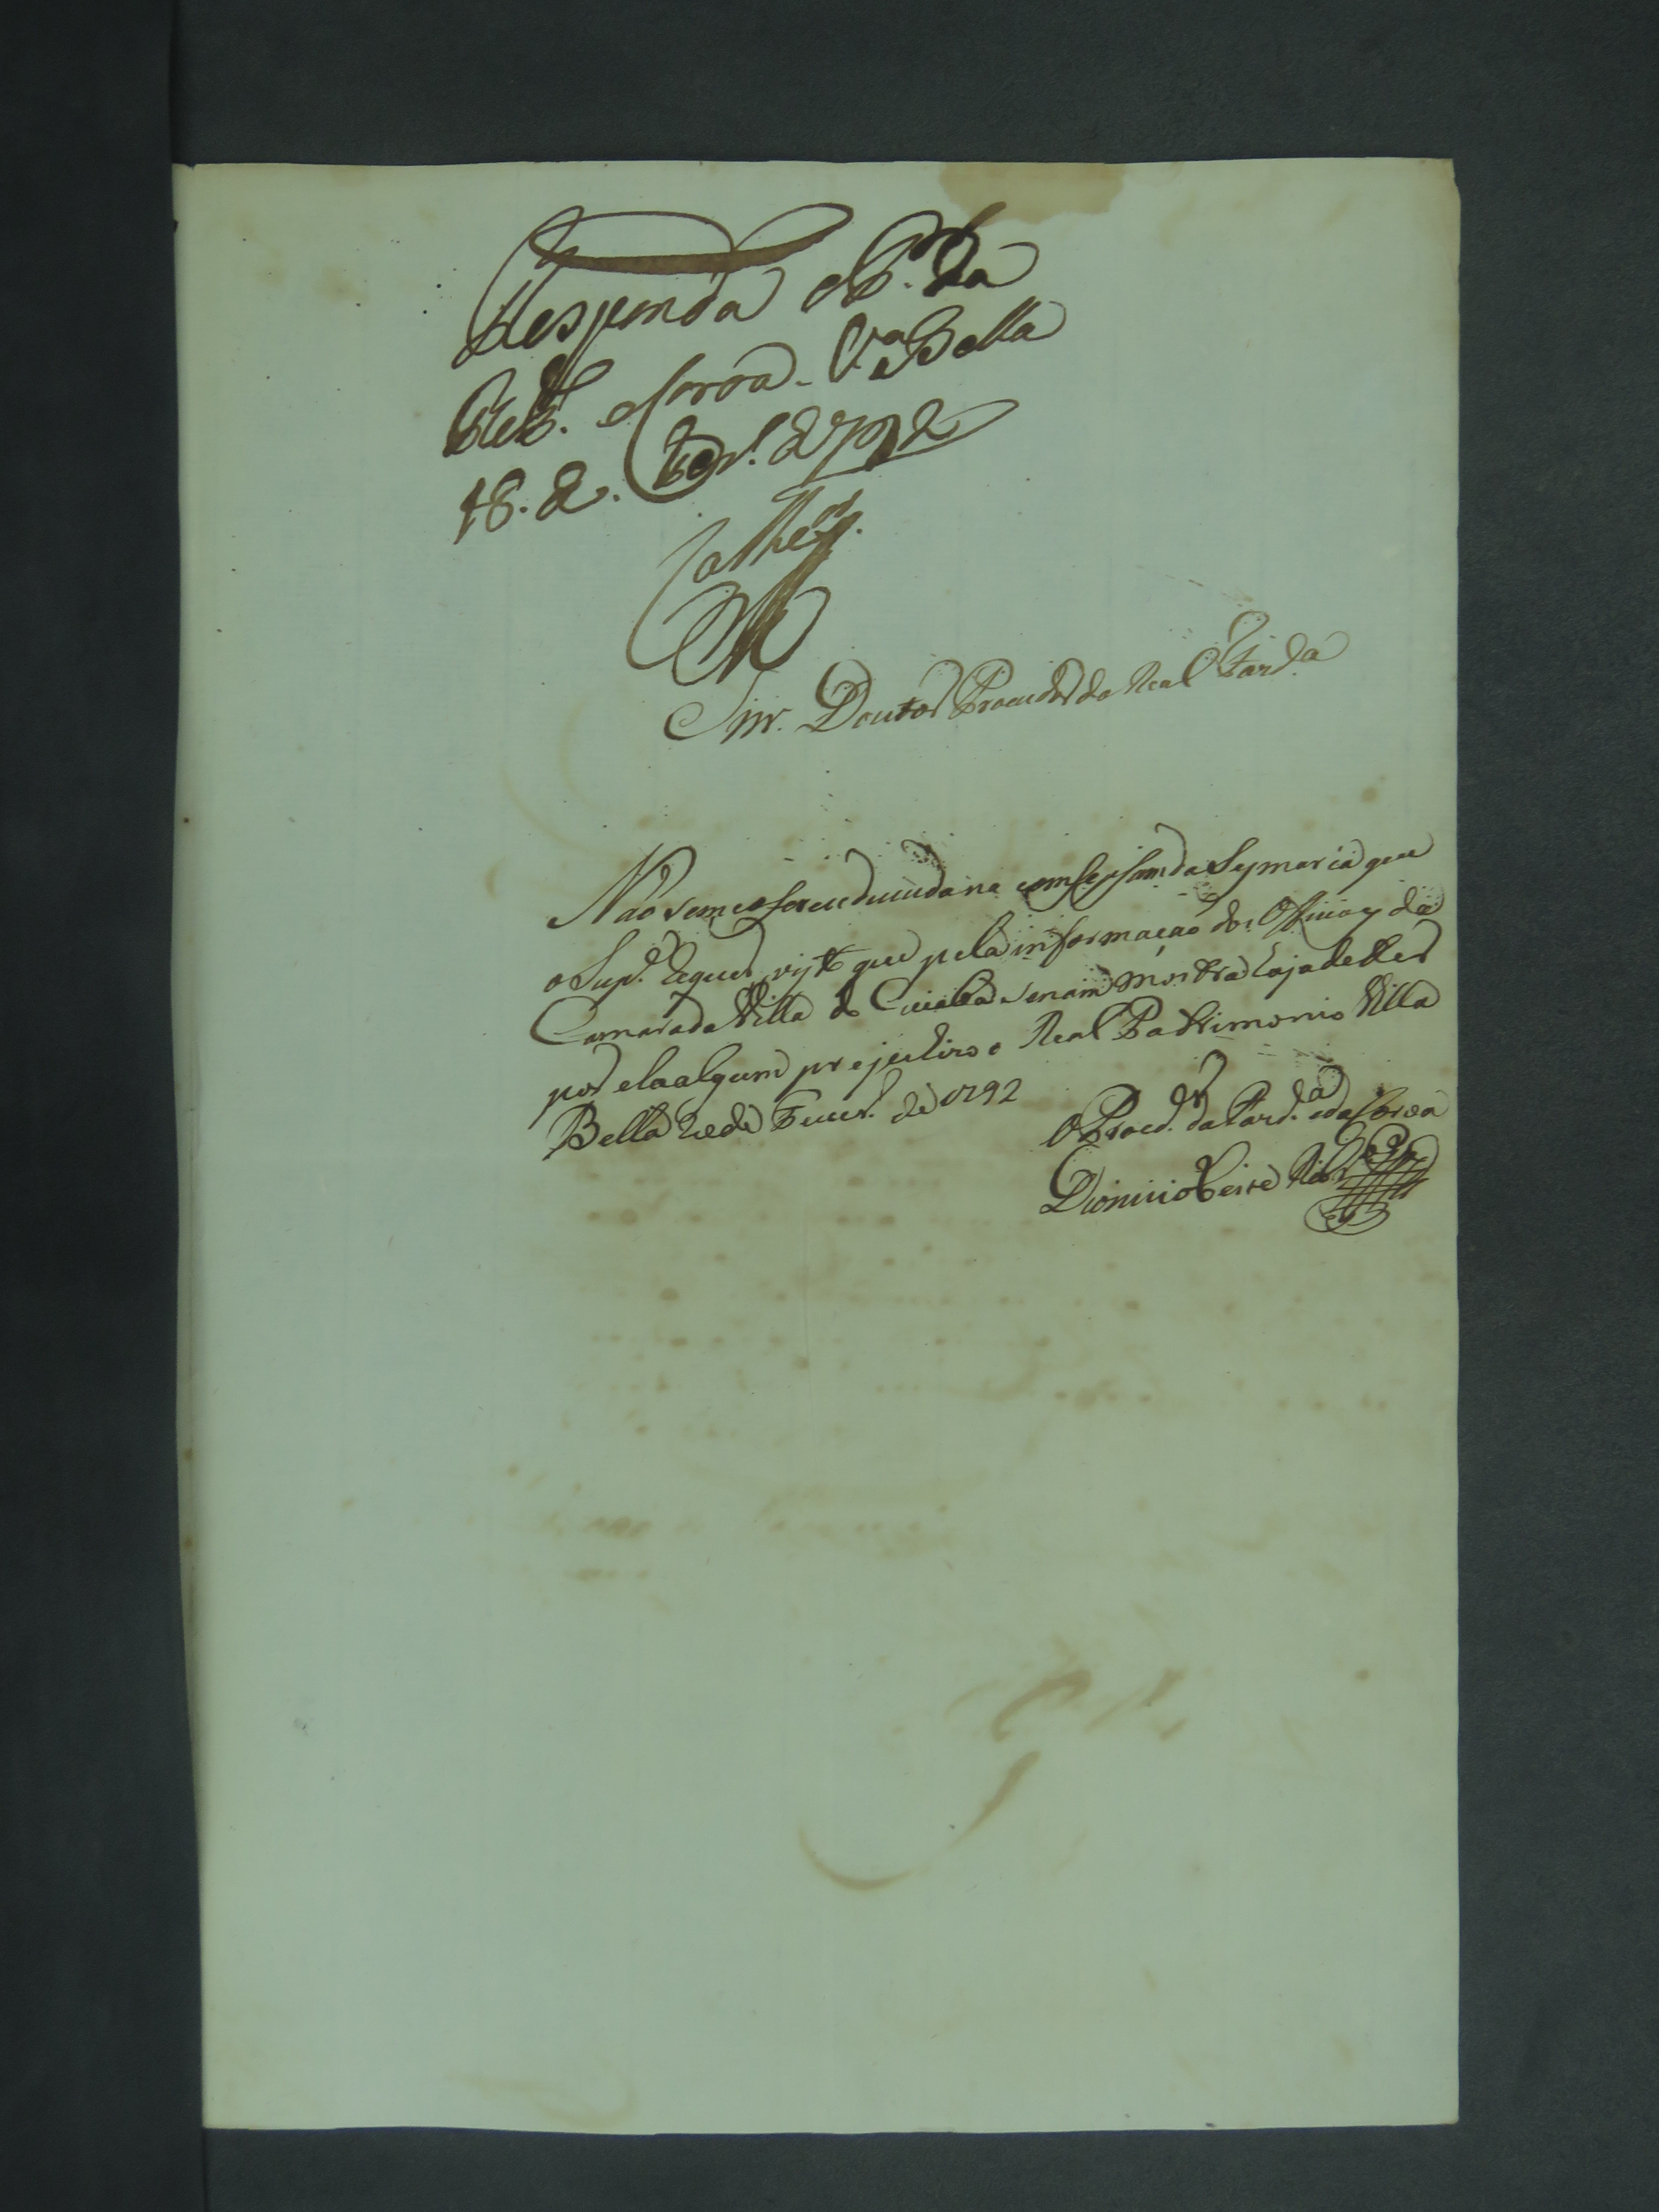 Responda o P.or da
Real Corôa. V.a Bella
18. de Fevr.o de 792
Snr. Doutor Procudor da Real Fazd.a
Não se me oferece duvida na comsesam da Sesmaria que
o Sup.e Requer visto que pela informação dos Officiaes da
Camara da Villa do Cuiaba se nam mostra haja de ter
por ela algum prejuhizo o Real Patrimonio Villa
Bella de Fever.o de 1792
O Procd.or da Fazd.a e da Coroa
Dionizio